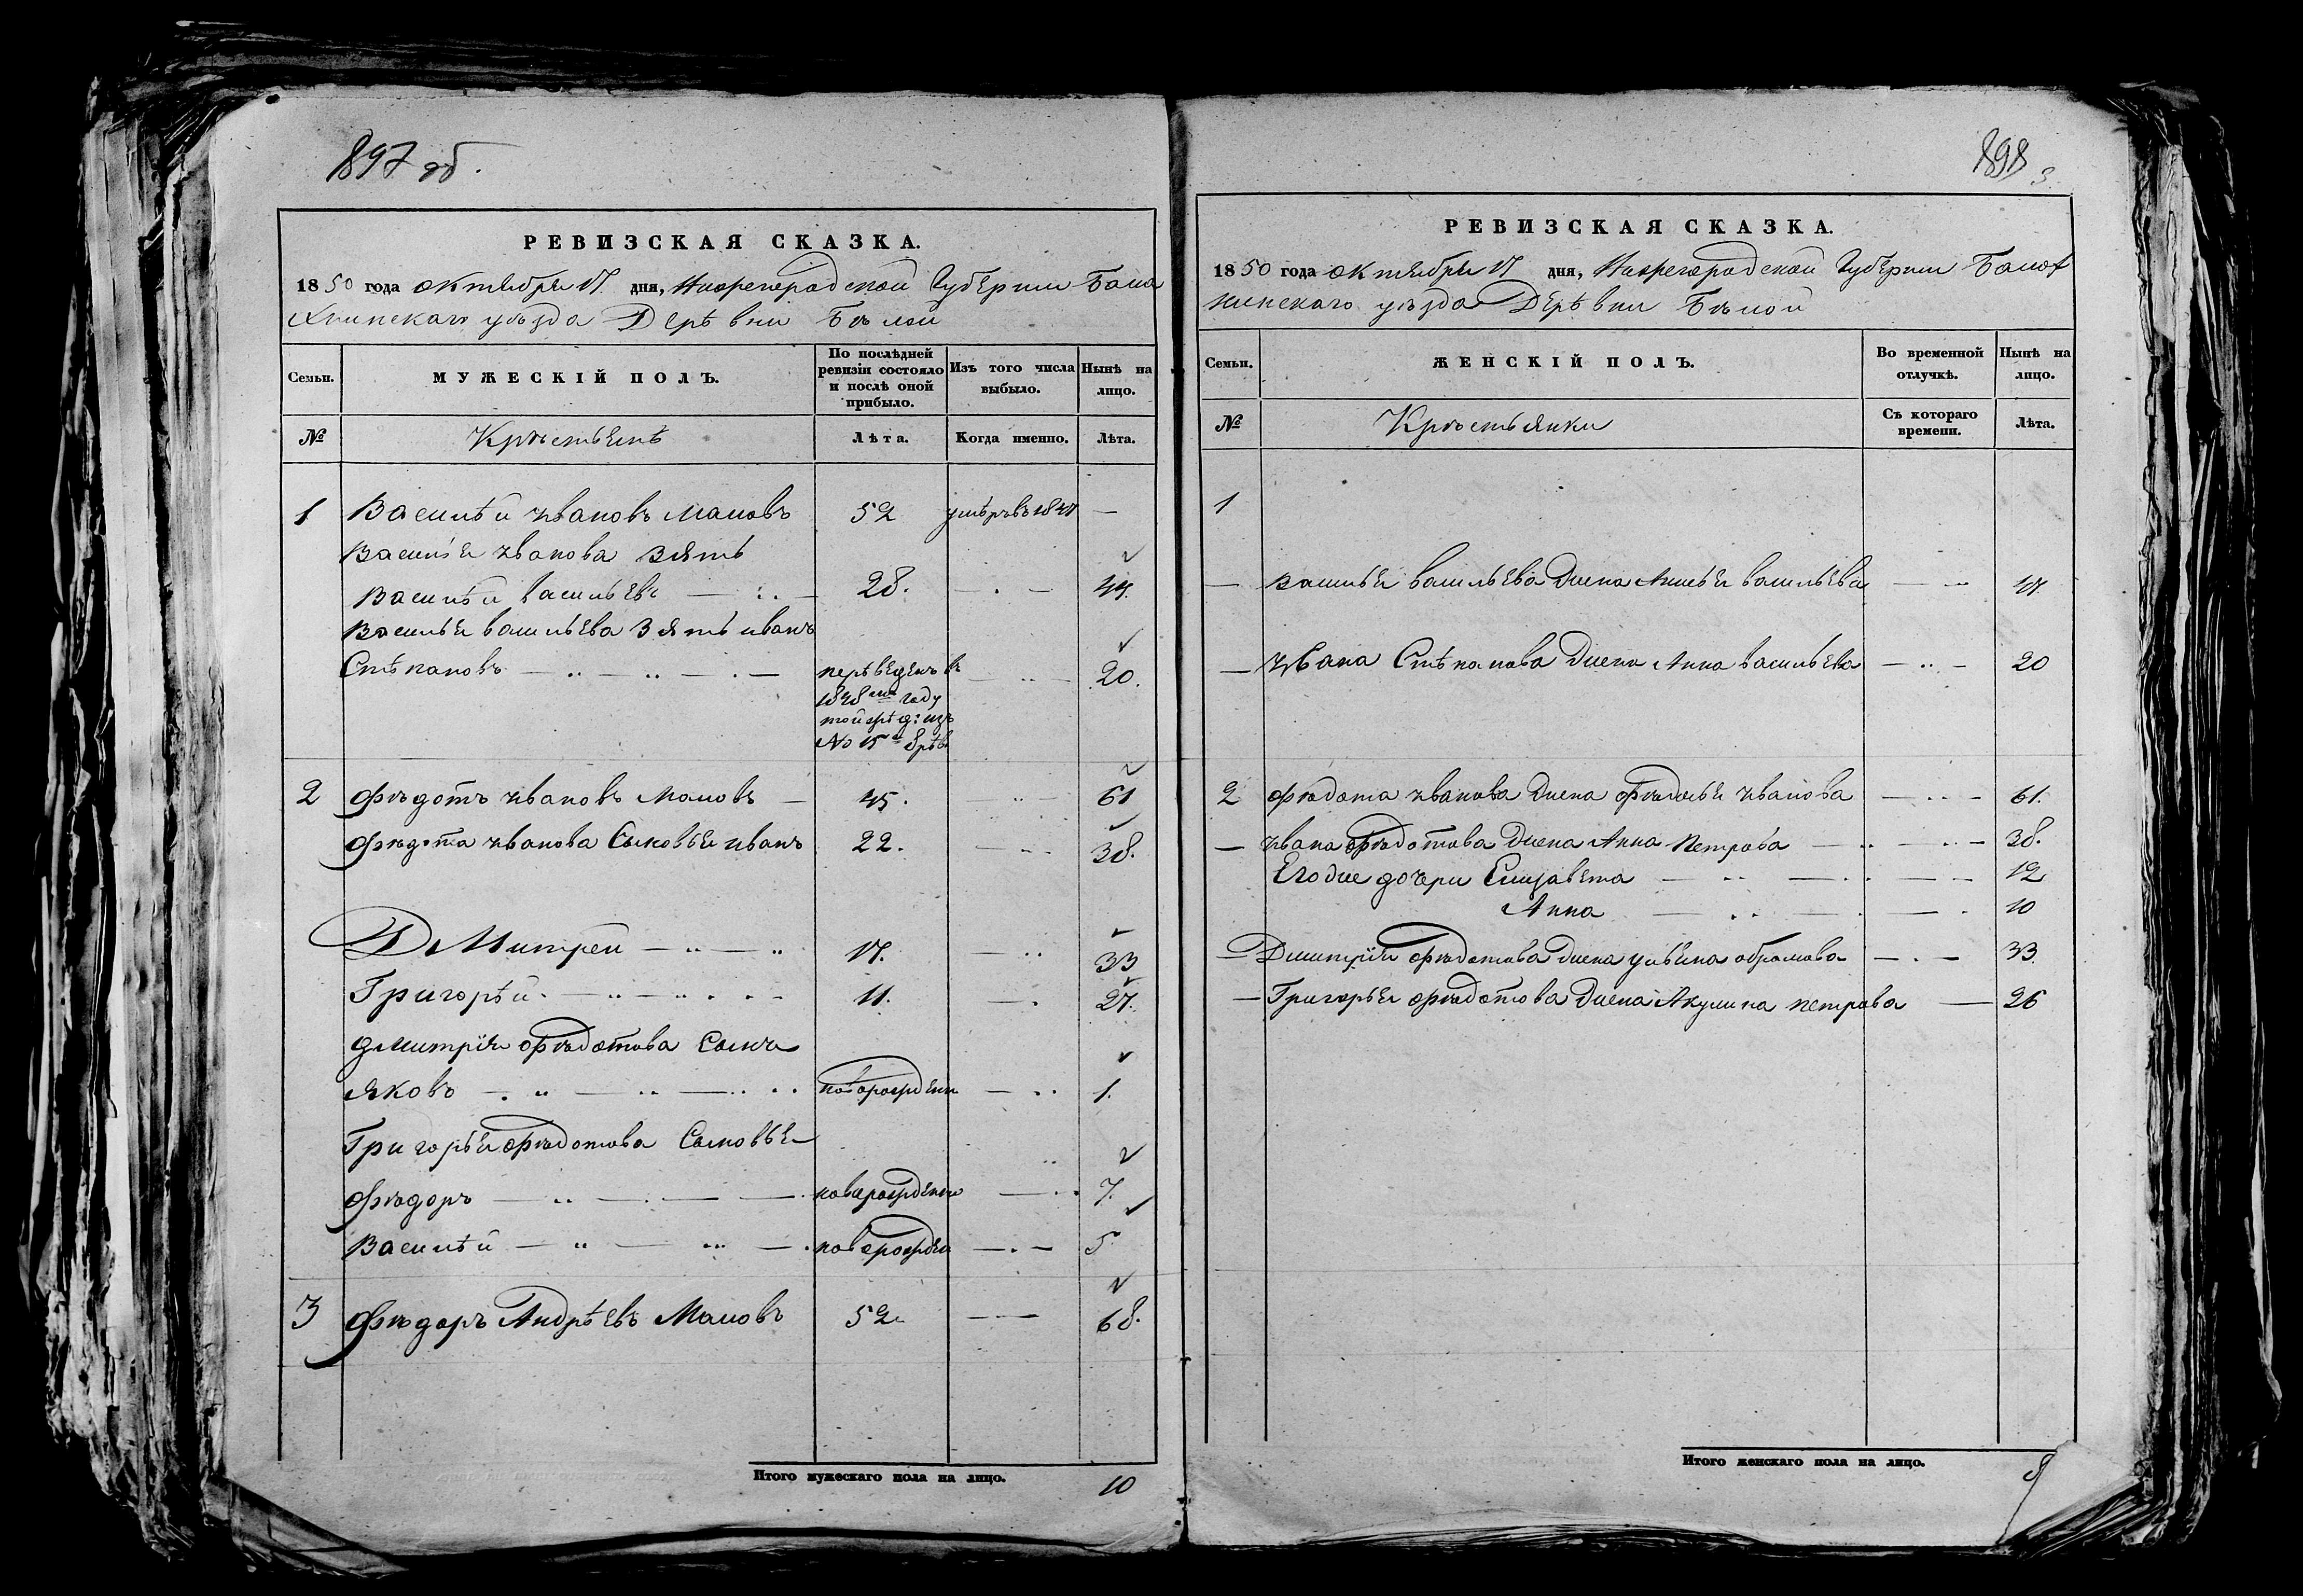 897 об.
РЕВИЗСКАЯ СКАЗКА.
1850 года октября 17 дня, Нижегородской Губернии Бала
хнинскаго уѣзда Дерѣвни Бѣлой
Семьи.
МУЖЕСКІЙ ПОЛЪ.
По послѣдней ревизіи состояло и послѣ оной прибыло.
Изъ того числа выбыло.
Нынѣ на лицо.
№
Крѣстьенѣ
Лѣта.
Когда именно.
Лѣта.
1 Василѣй Ивановъ Маловъ 52 умѣръ въ —
Василья Иванова Зять
Василѣй Васильевъ 28. 44.
Василья Васильева Зять иванъ
Стѣпановъ перѣведенъ въ 20.
1848 мъ году
той же д: изъ
№ 15
2 Фѣдотъ Ивановъ Маловъ — 45. 61
Фѣдота Иванова Сыновья иванъ 22. 38.
Дмитрей 17. 33
Григорѣй 11. 27.
Дмитрія Фѣдотова Сынъ
Яковъ новорожденъ 1.
Григорья Фѣдотова Сыновья
Фѣдоръ новорожденъ 7.
Василѣй новорожден 5
3 Фѣдоръ Андрѣевъ Маловъ 52 68.
Итого мужескаго пола на лицо. 10
898
3
РЕВИЗСКАЯ СКАЗКА.
1850 года октября 17 дня, Нижегородской Губернии Балах
нинскаго уѣзда Дерѣвни Бѣлой
Семьи.
ЖЕНСКІЙ ПОЛЪ.
Во временной отлучкѣ.
Нынѣ на лицо.
№
Крѣстьянки
Съ котораго времени.
Лѣта.
1
— Василья Васильева Жена Васильева
— Ивана Стѣпанова Жена Анна Васильева 20
2 Фѣдота Иванова Жена Фѣдосья Иванова 61.
— Ивана Фѣдотова Жена Анна Петрова 38.
Егоже дочери Елизавета 12
Анна 10
— Дмитрія Фѣдотова Жена Ульяна Абрамова 33
— Григорья Фѣдотова Жена Акулина Петрова 26
Итого женскаго пола на лицо. 8